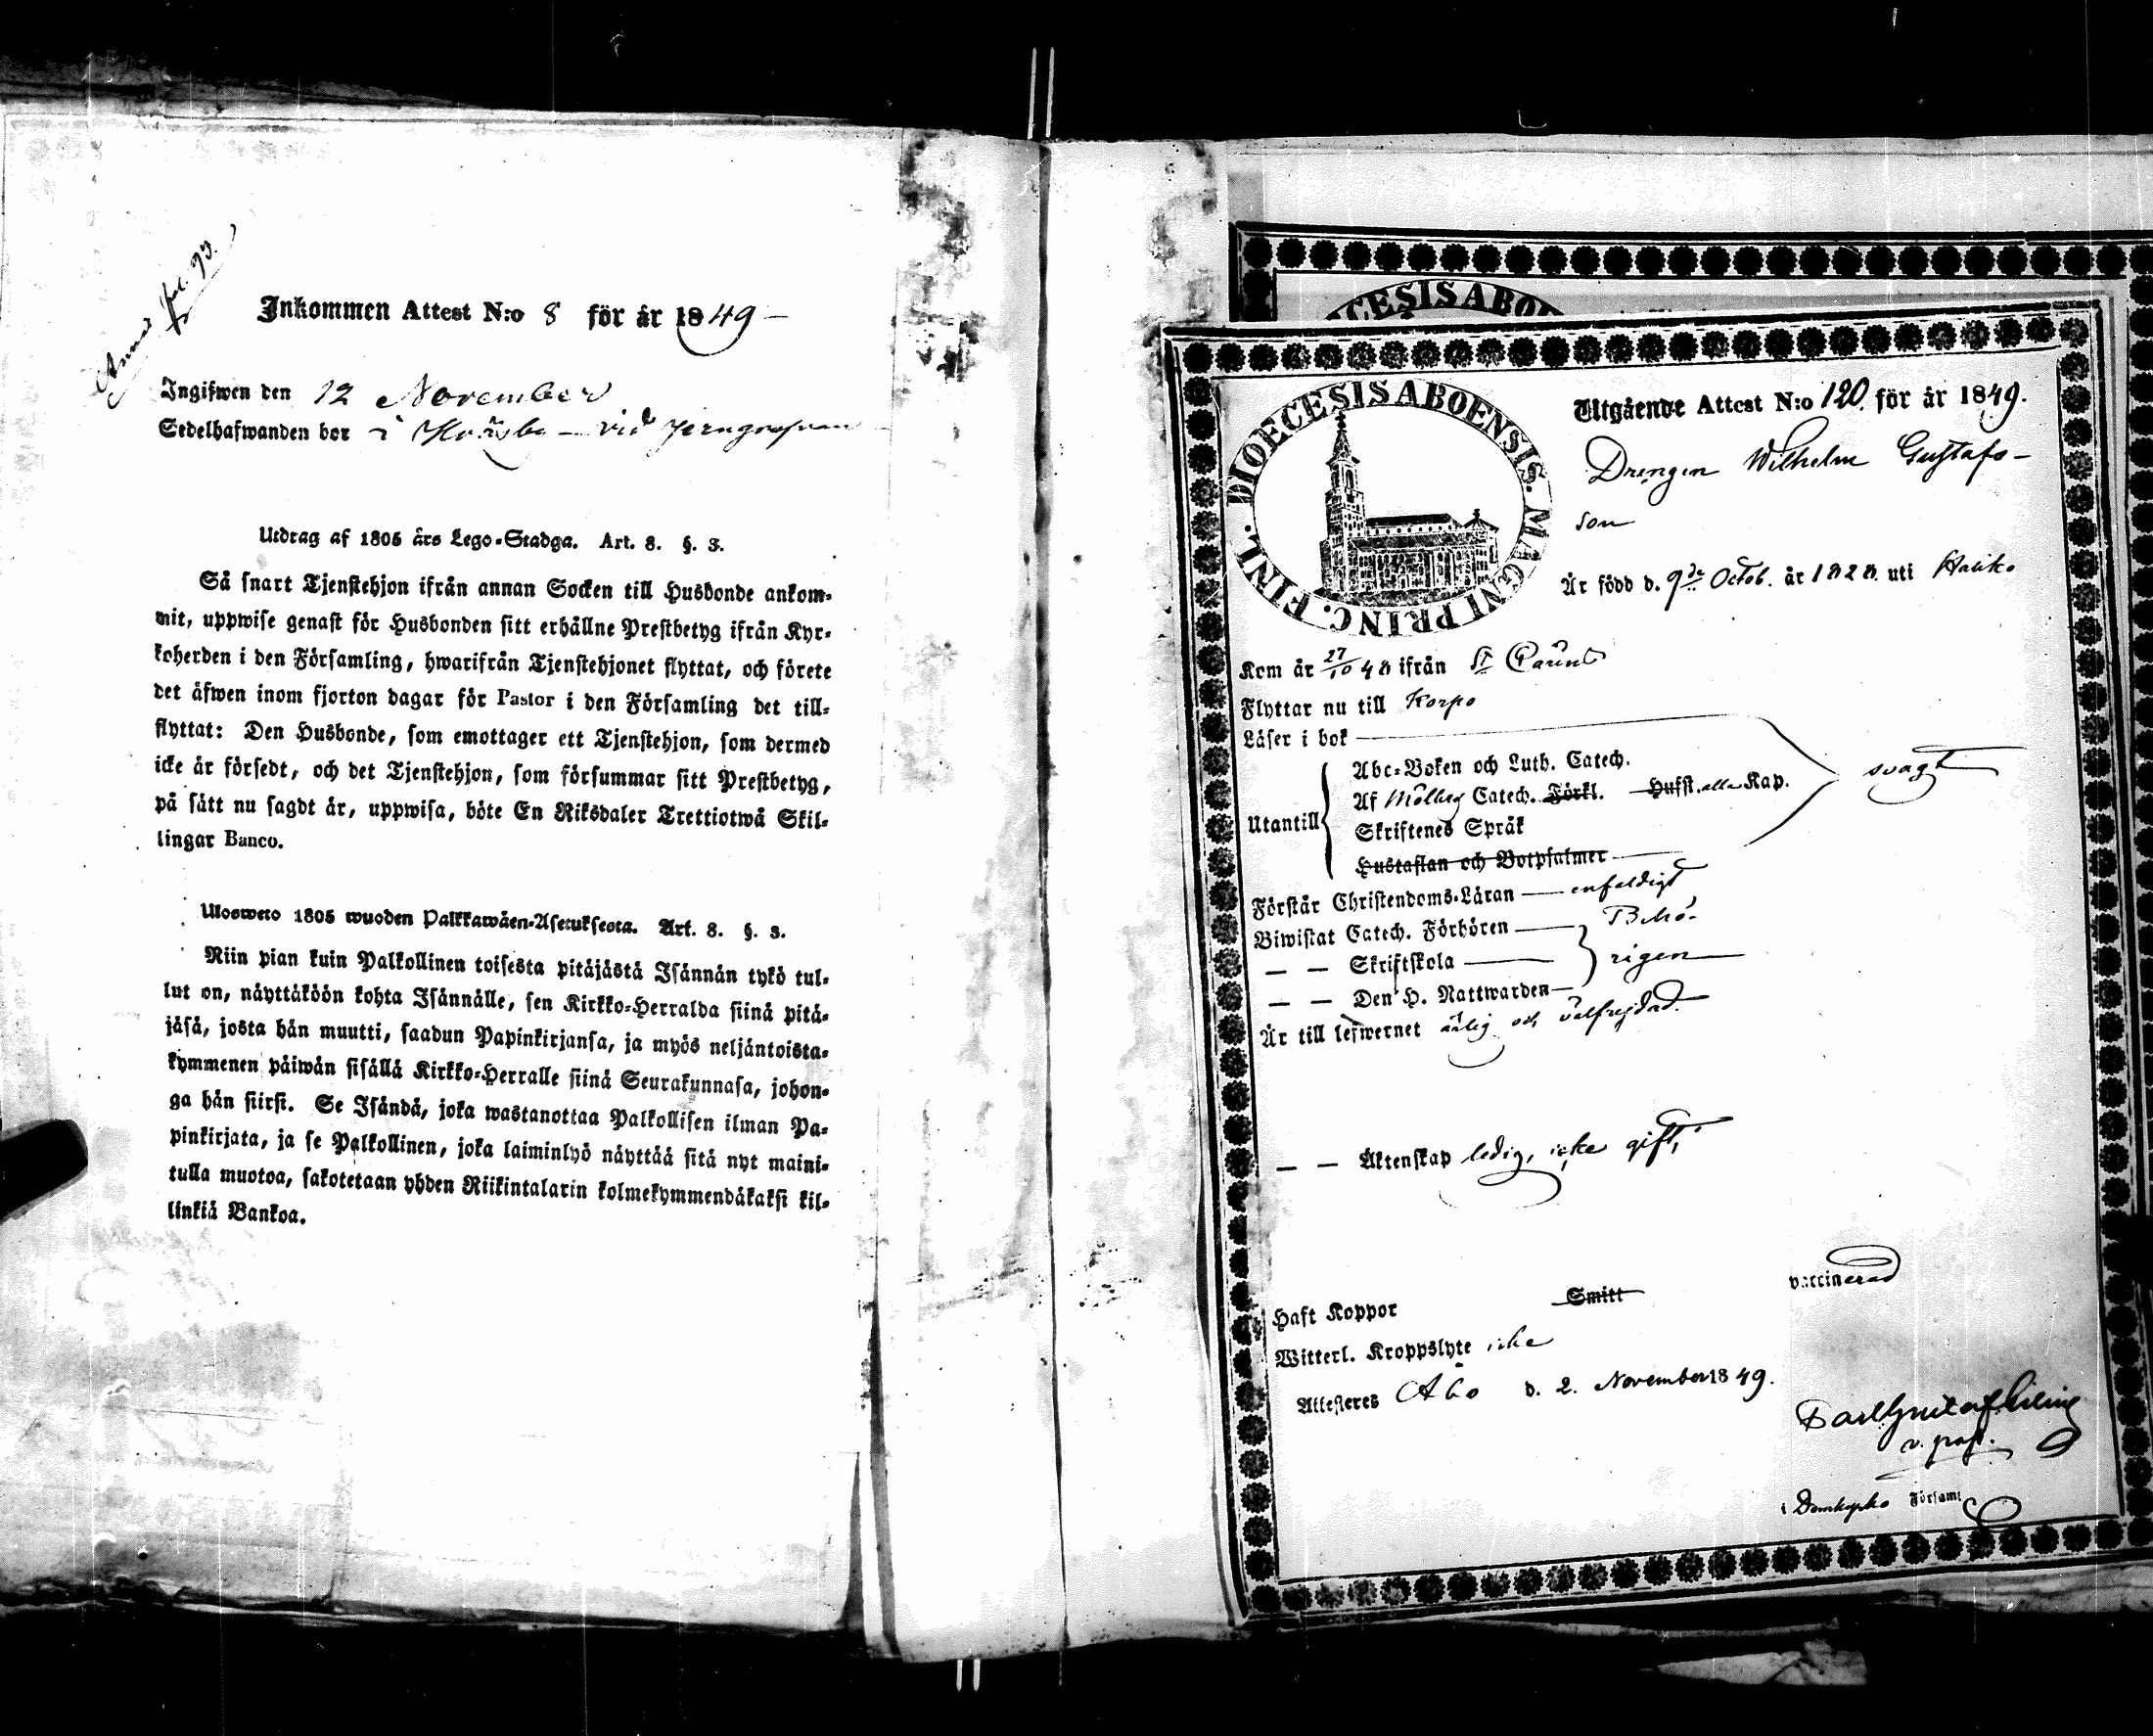 Annot fol. 93.
Inkommen Attest N:o 8 för år 1849 —
Ingifwen den 12 November
Sedelhafwanden bor i — vid jerngrufvan
Utdrag af 1805 års Lego-Stadga. Art. 8. §. 3.
Så snart Tjenstehjon ifrån annan Socken till Husbonde ankom-
mit, uppwise genast för Husbonden sitt erhållne Prestbetyg ifrån Kyr-
koherden i den Församling, hwarifrån Tjenstehjonet flyttat, och förete
det äfwen inom fjorton dagar för Pastor i den Församling det till-
flyttat: Den Husbonde, som emottager ett Tjenstehjon, som dermed
icke är försedt, och det Tjenstehjon, som försummar sitt Prestbetyg,
på sätt nu sagdt är, uppwisa, böte En Riksdaler Trettiotwå Skil-
lingar Banco.
Ulosweto 1805 wuoden Palkkawäen-Asetuksesta. Art. 8. §. 3.
Niin pian kuin Palkollinen toisesta pitäjästä Isännän tykö tul-
lut on, näyttäköön kohta Isännälle, sen Kirkko-Herralda siinä pitä-
jäsä, josta hän muutti, saadun Papinkirjansa, ja myös neljäntoista-
kymmenen päiwän sisällä Kirkko-Herralle siinä Seurakunnasa, johon-
ga hän siirsi. Se Isändä, joka wastanottaa Palkollisen ilman Pa-
pinkirjata, ja se Palkollinen, joka laiminlyö näyttää sitä nyt maini-
tulla muotoa, sakotetaan yhden Riikintalarin kolmekymmendäkaksi kil-
linkiä Bankoa.
CESIS ABO
DIOECESIS ABOENSIS. MAGNI PRINC. FINL.
Utgående Attest N:o 120. för år 1849.
Drengen Wilhelm Gustafs-
son
Är född d. 9de Octob. år 1828. uti Haliko
Kom år 27/10 48 ifrån St Carins
Flyttar nu till Korpo
Läser i bok
Abc-Boken och Luth. Catech.
Af Möllers Catech. Förkl. Hufst. alla Kap.
svagt
Utantill
Skriftenes Språk
Hustaflan och Botpsalmer
Förstår Christendoms-Läran — enfaldigt
Biwistat Catech. Förhören — Behö-
— — Skriftskola — rigen
— — Den H. Nattwarden —
Är till lefwernet ärlig och välfrejdad.
— — Äktenskap ledig, icke gift,
Haft Koppor Smitt vaccinerad
Witterl. Kroppslyte icke
Attesteres Åbo d. 2. November 1849.
v. past.
i Domkyrko Församl